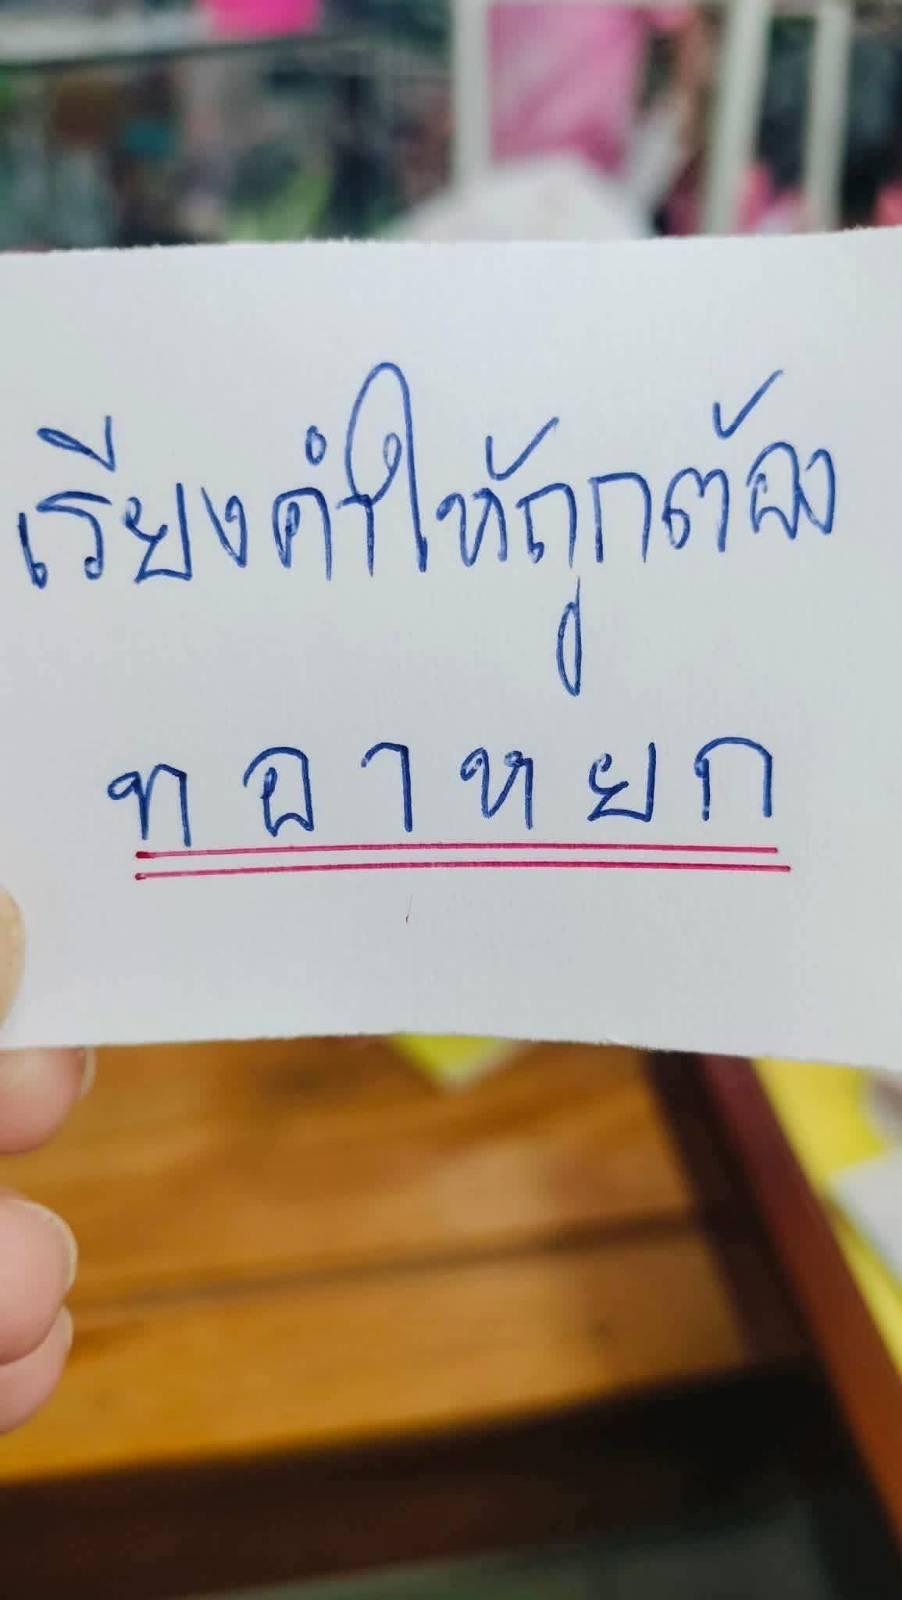 เรียงคำให้ถูกต้อง
ท อ า ห ย ก